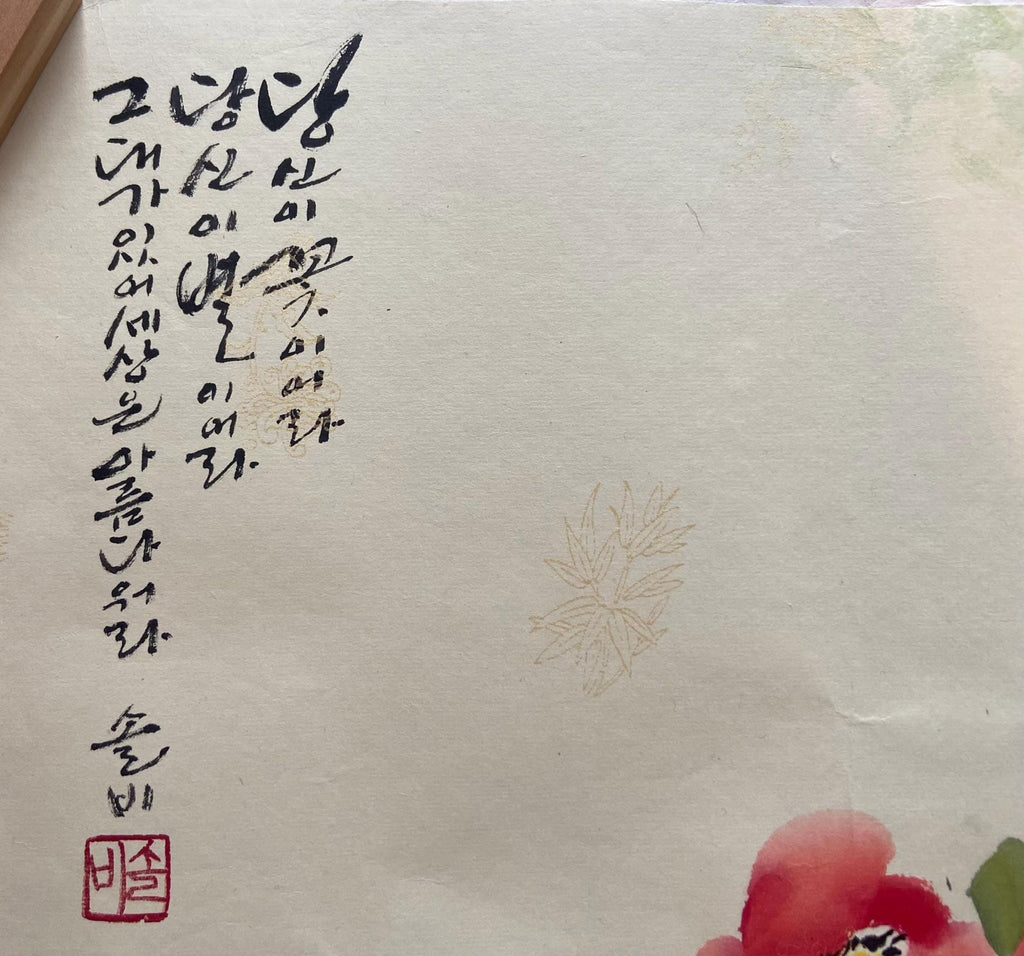 당신이 꽃이어라
당신이 별이어라
그대가 있어 세상은 아름다워라
솔비
솔비